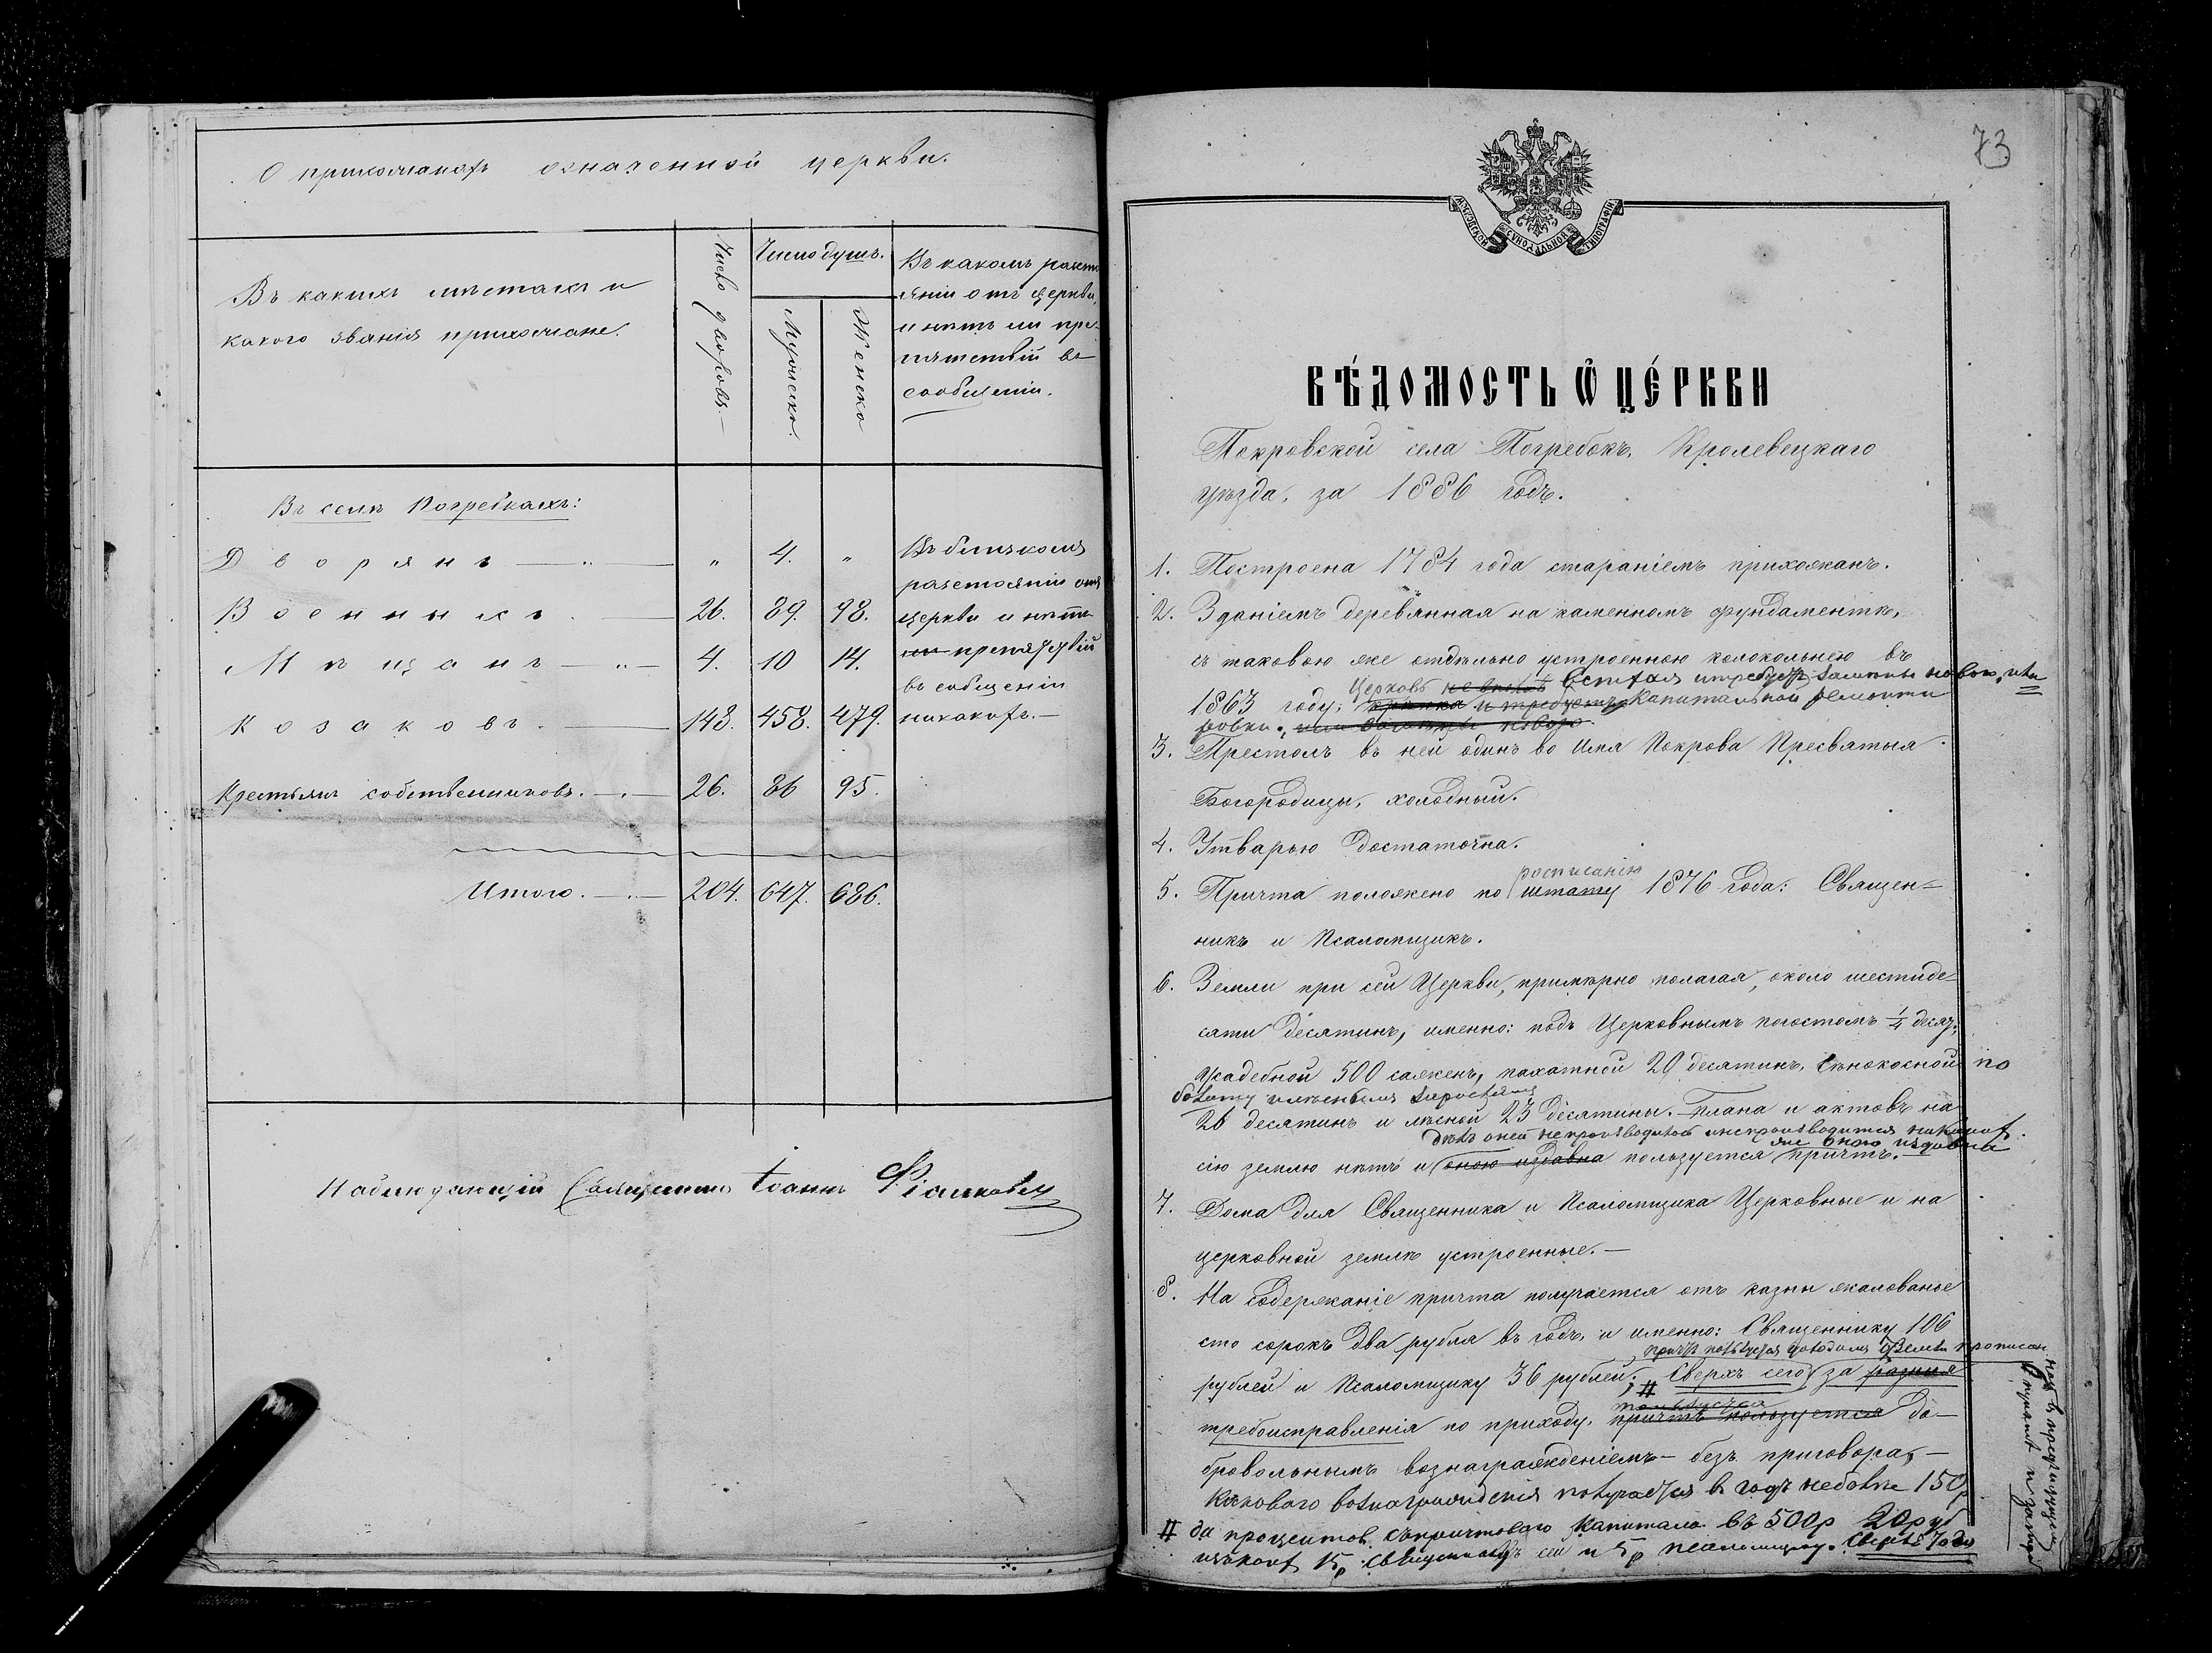 О прихожанахъ означенной церкви.
Въ какихъ мѣстахъ и
какого званія прихожане.
Число дворовъ.
Число душъ.
Мужеска.
Женска
Въ какомъ разсто-
яніи отъ церкви,
и нѣтъ ли пре-
пятствій въ
сообщеніи.
Въ селѣ Погребкахъ:
Дворянъ — „ — „ 4. „
Военныхъ. — 26. 89. 98.
Мѣщанъ — „ — 4. 10 14.
Козаковъ. — 148. 458. 479.
Крестьянъ собственниковъ. — 26. 86 95.
Въ близкомъ
разстояніи отъ
церкви и нѣтъ
ли препятствій
въ сообщеніи
никакихъ. —
Итого. — 204. 647. 686.
Наблюдающій Священникъ Іоаннъ
73
МОСКОВСК. СѴНОДАЛЬНОЙ ТИПОГРАФІИ
ВѢДОМОСТЬ Ѽ ЦЕ́РКВИ
Покровской села Погребокъ, Кролевецкаго
уѣзда, за 1886 годъ.
1. Построена 1784 года стараніемъ прихожанъ.
2. Зданіемъ деревянная на каменномъ фундаментѣ,
съ таковою же отдѣльно устроенною колокольнею въ
Церковь ветхая и требуетъ замѣны новою, или
1863 году; крѣпка и требуетъ капитальной ремонти
ровки. или замѣны новою.
3. Престолъ въ ней одинъ во имя Покрова Пресвятыя
Богородицы, холодный.
4. Утварью достаточна.
росписанію
5. Причта положено по штату 1876 года: Священ-
никъ и Псаломщикъ.
6. Земли при сей Церкви, примѣрно полагая, около шестиде-
сяти десятинъ, именно: подъ Церковнымъ погостомъ ¼ десят.
усадебной 500 сажень, пахатной 20 десятинъ, сѣнокосной по
26 десятинъ и лѣсной 23 десятины. Плана и актовъ на
дѣлъ оней непроизводилось и непроизводится никакихъ.
же оною издавна
сію землю нѣтъ и оною издавна пользуется причтъ.
7. Дома для Священника и Псаломщика Церковные и на
церковной землѣ устроенные. —
8. На содержаніе причта получается отъ казны жалованье
сто сорокъ два рубля въ годъ, и именно: Священнику 106
причтъ пользуется доходомъ земли прописан
рублей и Псаломщику 36 рублей; # Сверхъ сего за разныя
пользуется
требоисправленія по приходу, причтъ пользуется до-
бровольнымъ вознагражденіемъ — безъ приговора, —
Каковаго вознагражденія получается въ годъ неболѣе 150 р
# да процентов. съ причтоваго капитала въ 500 р 20 руб
изъ коихъ 15 р Священнику сей и 5 р псаломщику. Сверхъ того